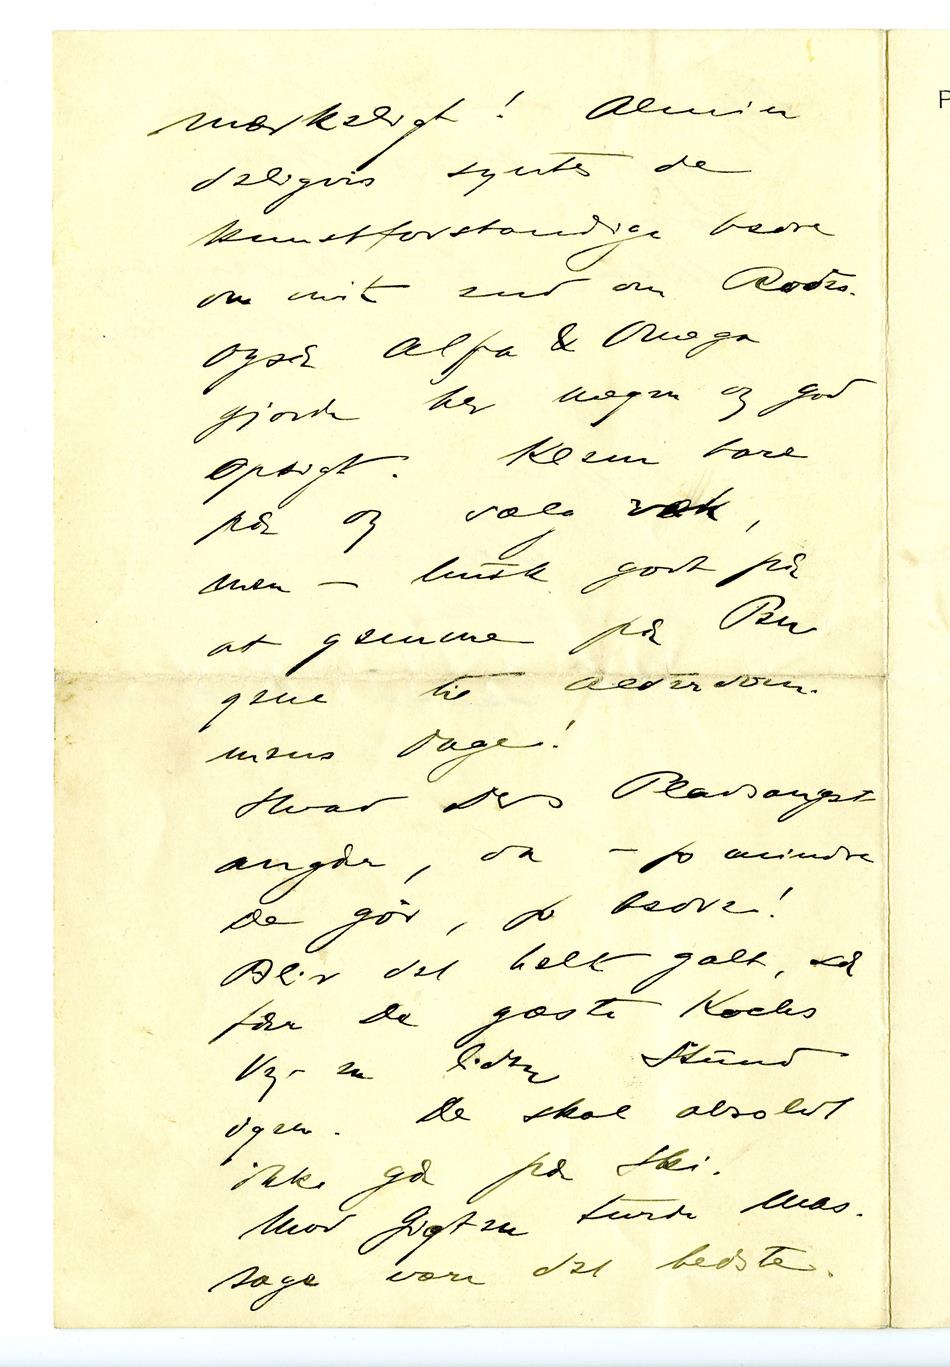 mærkeligt! Almin
deligvis syntes de
kunstforstandige bedre
om mit end om Rodes.
Også Alfa & Omega
gjorde her megen og god
Opsigt. Klem bare
på og vælg væk,
men – husk godt på
at gemme på Pen
gene til Alderdom-
mens Dage!
Hvad Deres Pladsangst
angår, da – jo mindre
De gør, jo bedre!
Blir det helt galt, så
får De gæste Kochs
Vg. en liden Stund
igen. De skal absolut
ikke gå på Ski.
Mod Gigten turde Mas-
sage være det bedste.
P